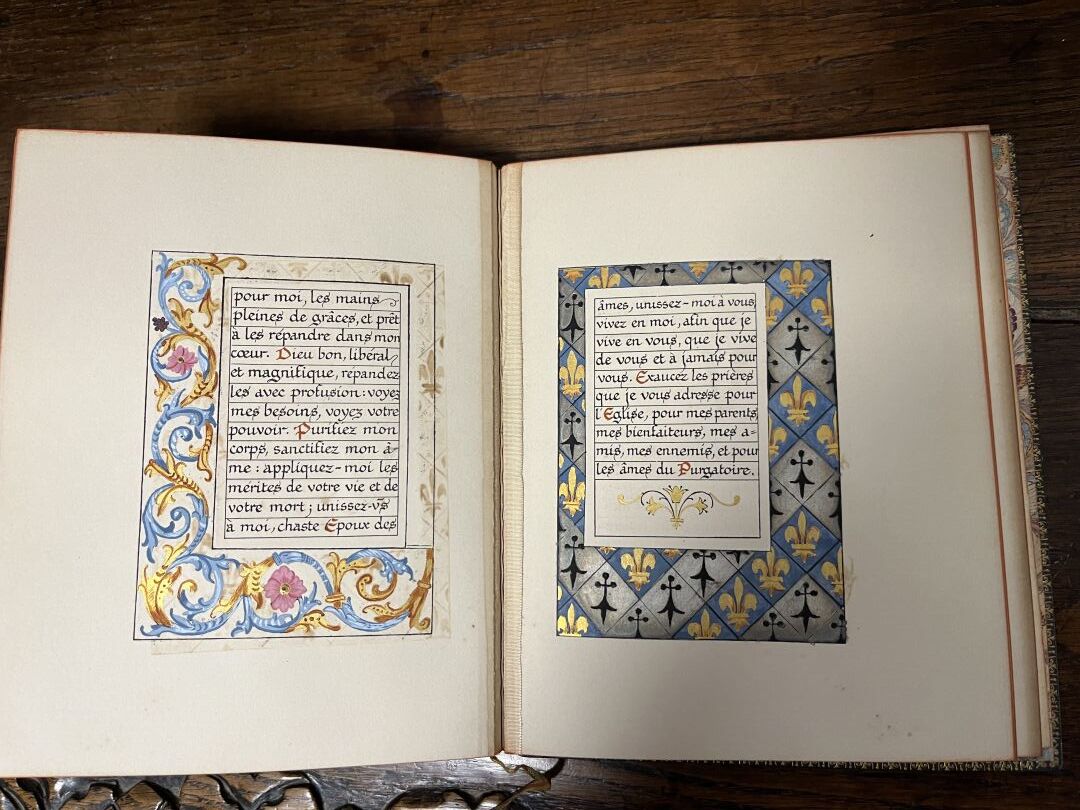 pour moi, les mains
pleines de grâces, et prêt
a les répandre dans mon
cœur. Dieu bon, libéral
et magnifique, répandez
les avec profusion: voyez
mes besoins, voyez votre
pouvoir. Purifiez mon
corps, sanctifiez mon â-
me: appliquez-moi les
mérites de votre vie et de
votre mort; unissez-vs
à moi, chaste Epoux des
âmes, unissez-moi à vous
vivez en moi, afin que je
vive en vous, que je vive
de vous et à jamais pour
vous. Exaucez les prières
que je vous adresse pour
l'Eglise, pour mes parents,
mes bienfaiteurs, mes a-
mis, mes ennemis, et pour
les âmes du Purgatoire.